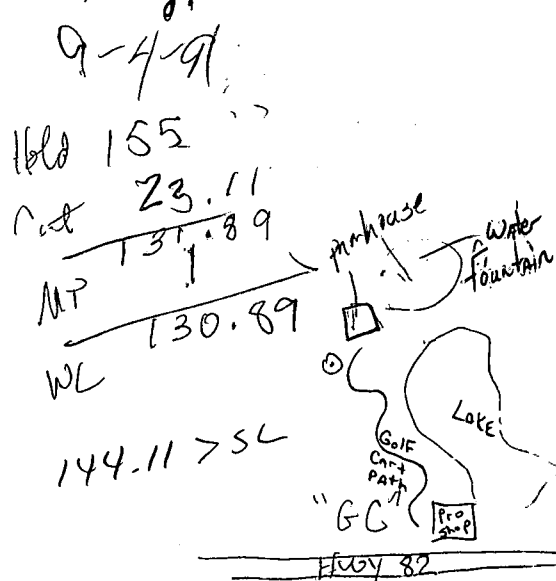 9-4-91
Hold 155
Cut 23.11
131.89
MP 1
130.89
WL
144.11 > SL
pumhouse
Water
Fountain
LAKE
GOlF
CArt
PATh
"GC
Pro
Shop
HWY 82